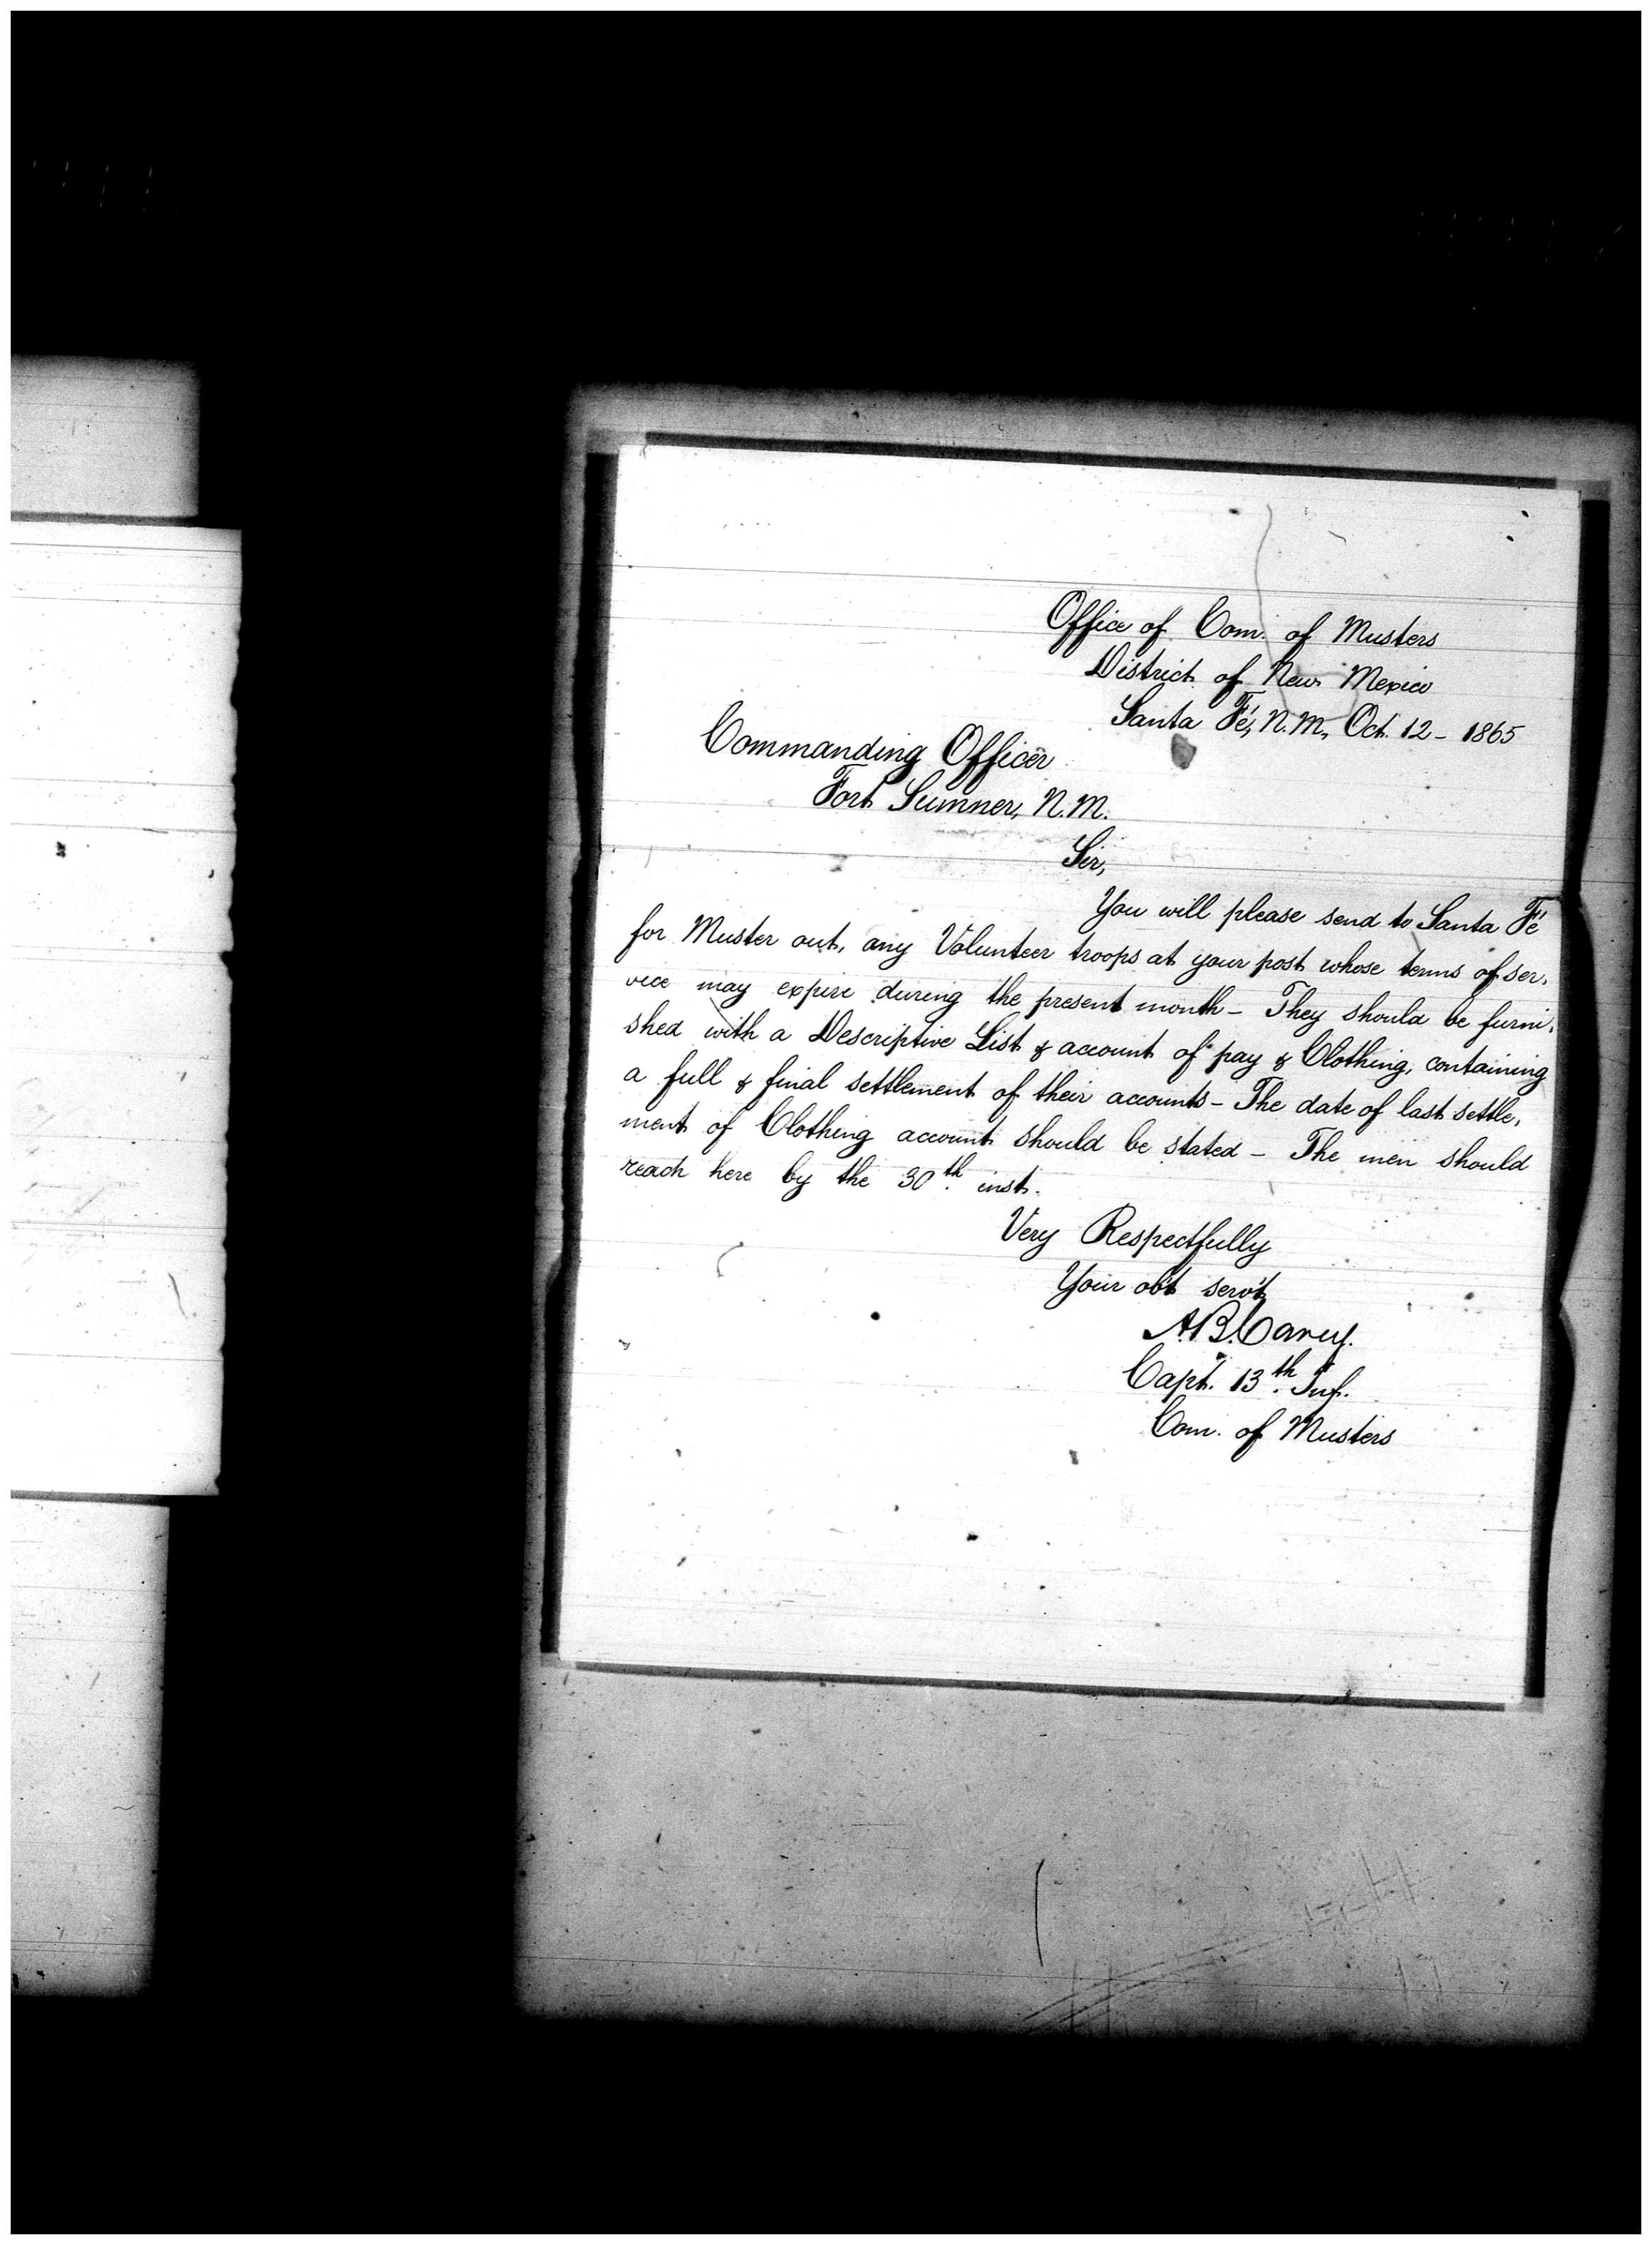 Office of Com. of Musters
District of New Mexico
Santa Fé, N.M., Oct. 12 - 1865
Commanding Officer
Fort Sumner, N.M.
Sir,
You will please send to Santa Fé
for Muster out, any Volunteer troops at your post whose terms of ser-
vice may expire during the present month - They should be furni-
shed with a Descriptive List & account of pay & Clothing, containing
a full & final settlement of their accounts - The date of last settle-
ment of Clothing account should be stated - The men should
reach here by the 30th inst.
Very Respectfully
Your obt servt
A.B. Carey.
Capt. 13th Inf.
Com. of Musters